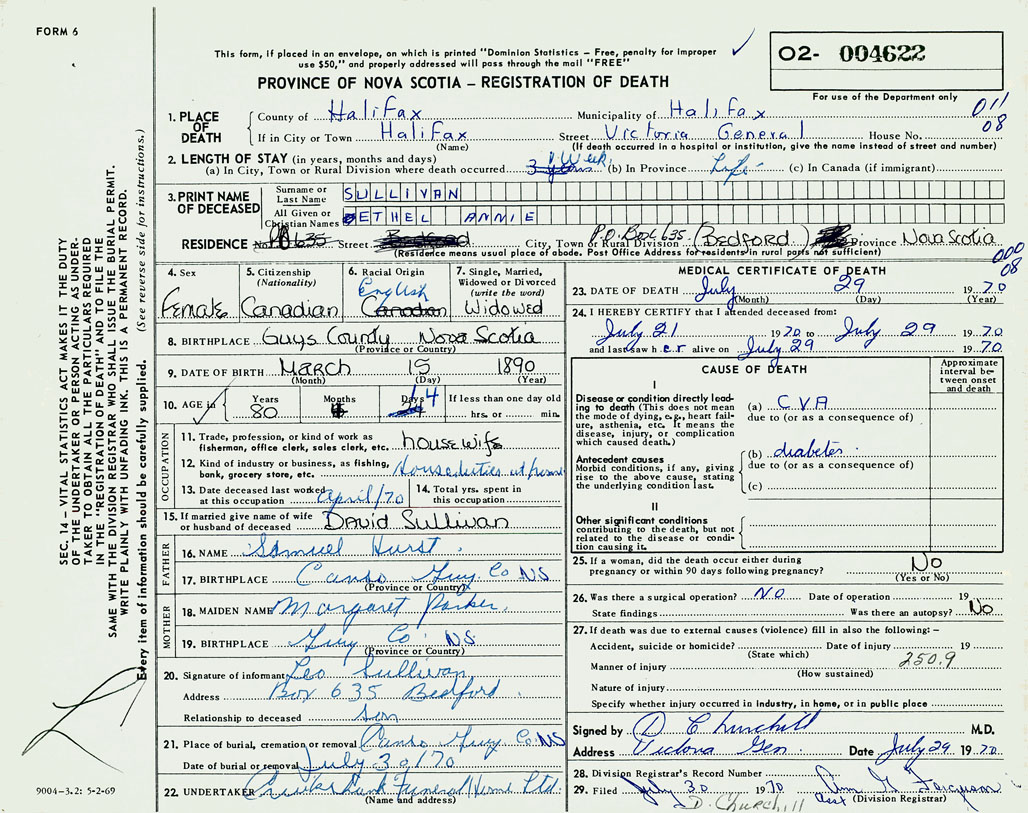 FORM 6
This form, if placed in an envelope, on which is printed "Dominion Statistics – Free, penalty for improper
use $50," and properly addressed will pass through the mail "FREE"
O2- 004622
For use of the Department only
PROVINCE OF NOVA SCOTIA – REGISTRATION OF DEATH
011
08
1. PLACE OF DEATH
County of Halifax Municipality of Halifax
If in City or Town Halifax Street Victoria General House No.
(Name) (If death occurred in a hospital or institution, give the name instead of street and number)
2. LENGTH OF STAY (in years, months and days)
(a) In City, Town or Rural Division where death occurred 1 Week (b) In Province Life (c) In Canada (if immigrant)
3. PRINT NAME OF DECEASED
Surname or Last Name SULLIVAN
All Given or Christian Names ETHEL ANNIE
RESIDENCE No. 635 Street Bedford City, Town or Rural Division P.O. Box 635 (BEDFORD) Province Nova Scotia
(Residence means usual place of abode. Post Office Address for residents in rural parts not sufficient)
000
08
4. Sex
Female
5. Citizenship
(Nationality)
Canadian
6. Racial Origin
English
Canadian
7. Single, Married,
Widowed or Divorced
(write the word)
Widowed
8. BIRTHPLACE Guys County Nova Scotia
(Province or Country)
9. DATE OF BIRTH March 15 1890
(Month) (Day) (Year)
10. AGE
Years 80 Months 4 Days 14
If less than one day old
hrs. or min.
OCCUPATION
11. Trade, profession, or kind of work as
fisherman, office clerk, sales clerk, etc. housewife
12. Kind of industry or business, as fishing,
bank, grocery store, etc. House duties at home
13. Date deceased last worked
at this occupation April/70
14. Total yrs. spent in
this occupation
15. If married give name of wife
or husband of deceased David Sullivan
FATHER
16. NAME Samuel Hurst
17. BIRTHPLACE Canso Guy. Co NS
(Province or Country)
MOTHER
18. MAIDEN NAME Margaret Parker
19. BIRTHPLACE Guy Co. NS.
(Province or Country)
20. Signature of informant Leo Sullivan
Address Box 635 Bedford
Relationship to deceased son
21. Place of burial, cremation or removal Canso Guy Co. NS
Date of burial or removal July 30/70
22. UNDERTAKER Cruikshank Funeral Home Ltd.
(Name and address)
MEDICAL CERTIFICATE OF DEATH
23. DATE OF DEATH July 29 1970
(Month) (Day) (Year)
24. I HEREBY CERTIFY that I attended deceased from:
July 21 1970 to July 29 1970
and last saw her alive on July 29 1970
CAUSE OF DEATH
Approximate
interval be-
tween onset
and death
I
Disease or condition directly lead-
ing to death (This does not mean
the mode of dying, e.g., heart fail-
ure, asthenia, etc. It means the
disease, injury, or complication
which caused death.)
(a) CVA
due to (or as a consequence of)
Antecedent causes
Morbid conditions, if any, giving
rise to the above cause, stating
the underlying condition last.
(b) diabetes
due to (or as a consequence of)
(c)
II
Other significant conditions
contributing to the death, but not
related to the disease or condi-
tion causing it.
25. If a woman, did the death occur either during
pregnancy or within 90 days following pregnancy? No
(Yes or No)
26. Was there a surgical operation? NO Date of operation 19
State findings Was there an autopsy? No
27. If death was due to external causes (violence) fill in also the following: –
Accident, suicide or homicide? Date of injury 19
(State which)
Manner of injury 250.9
(How sustained)
Nature of injury
Specify whether injury occurred in industry, in home, or in public place
Signed by D Churchill M.D.
Address Victoria Gen. Date July 29 1970
28. Division Registrar's Record Number
29. Filed July 30 1970 Ann G Ferguson
Asst (Division Registrar)
D. Churchill
SEC. 14 – VITAL STATISTICS ACT MAKES IT THE DUTY
OF THE UNDERTAKER OR PERSON ACTING AS UNDER-
TAKER TO OBTAIN ALL THE PARTICULARS REQUIRED
IN THE "REGISTRATION OF DEATH" AND TO FILE THE
SAME WITH THE DIVISION REGISTRAR WHO SHALL ISSUE THE BURIAL PERMIT.
WRITE PLAINLY WITH UNFADING INK. THIS IS A PERMANENT RECORD.
Every item of information should be carefully supplied. (See reverse side for instructions.)
9004-3.2: 5-2-69